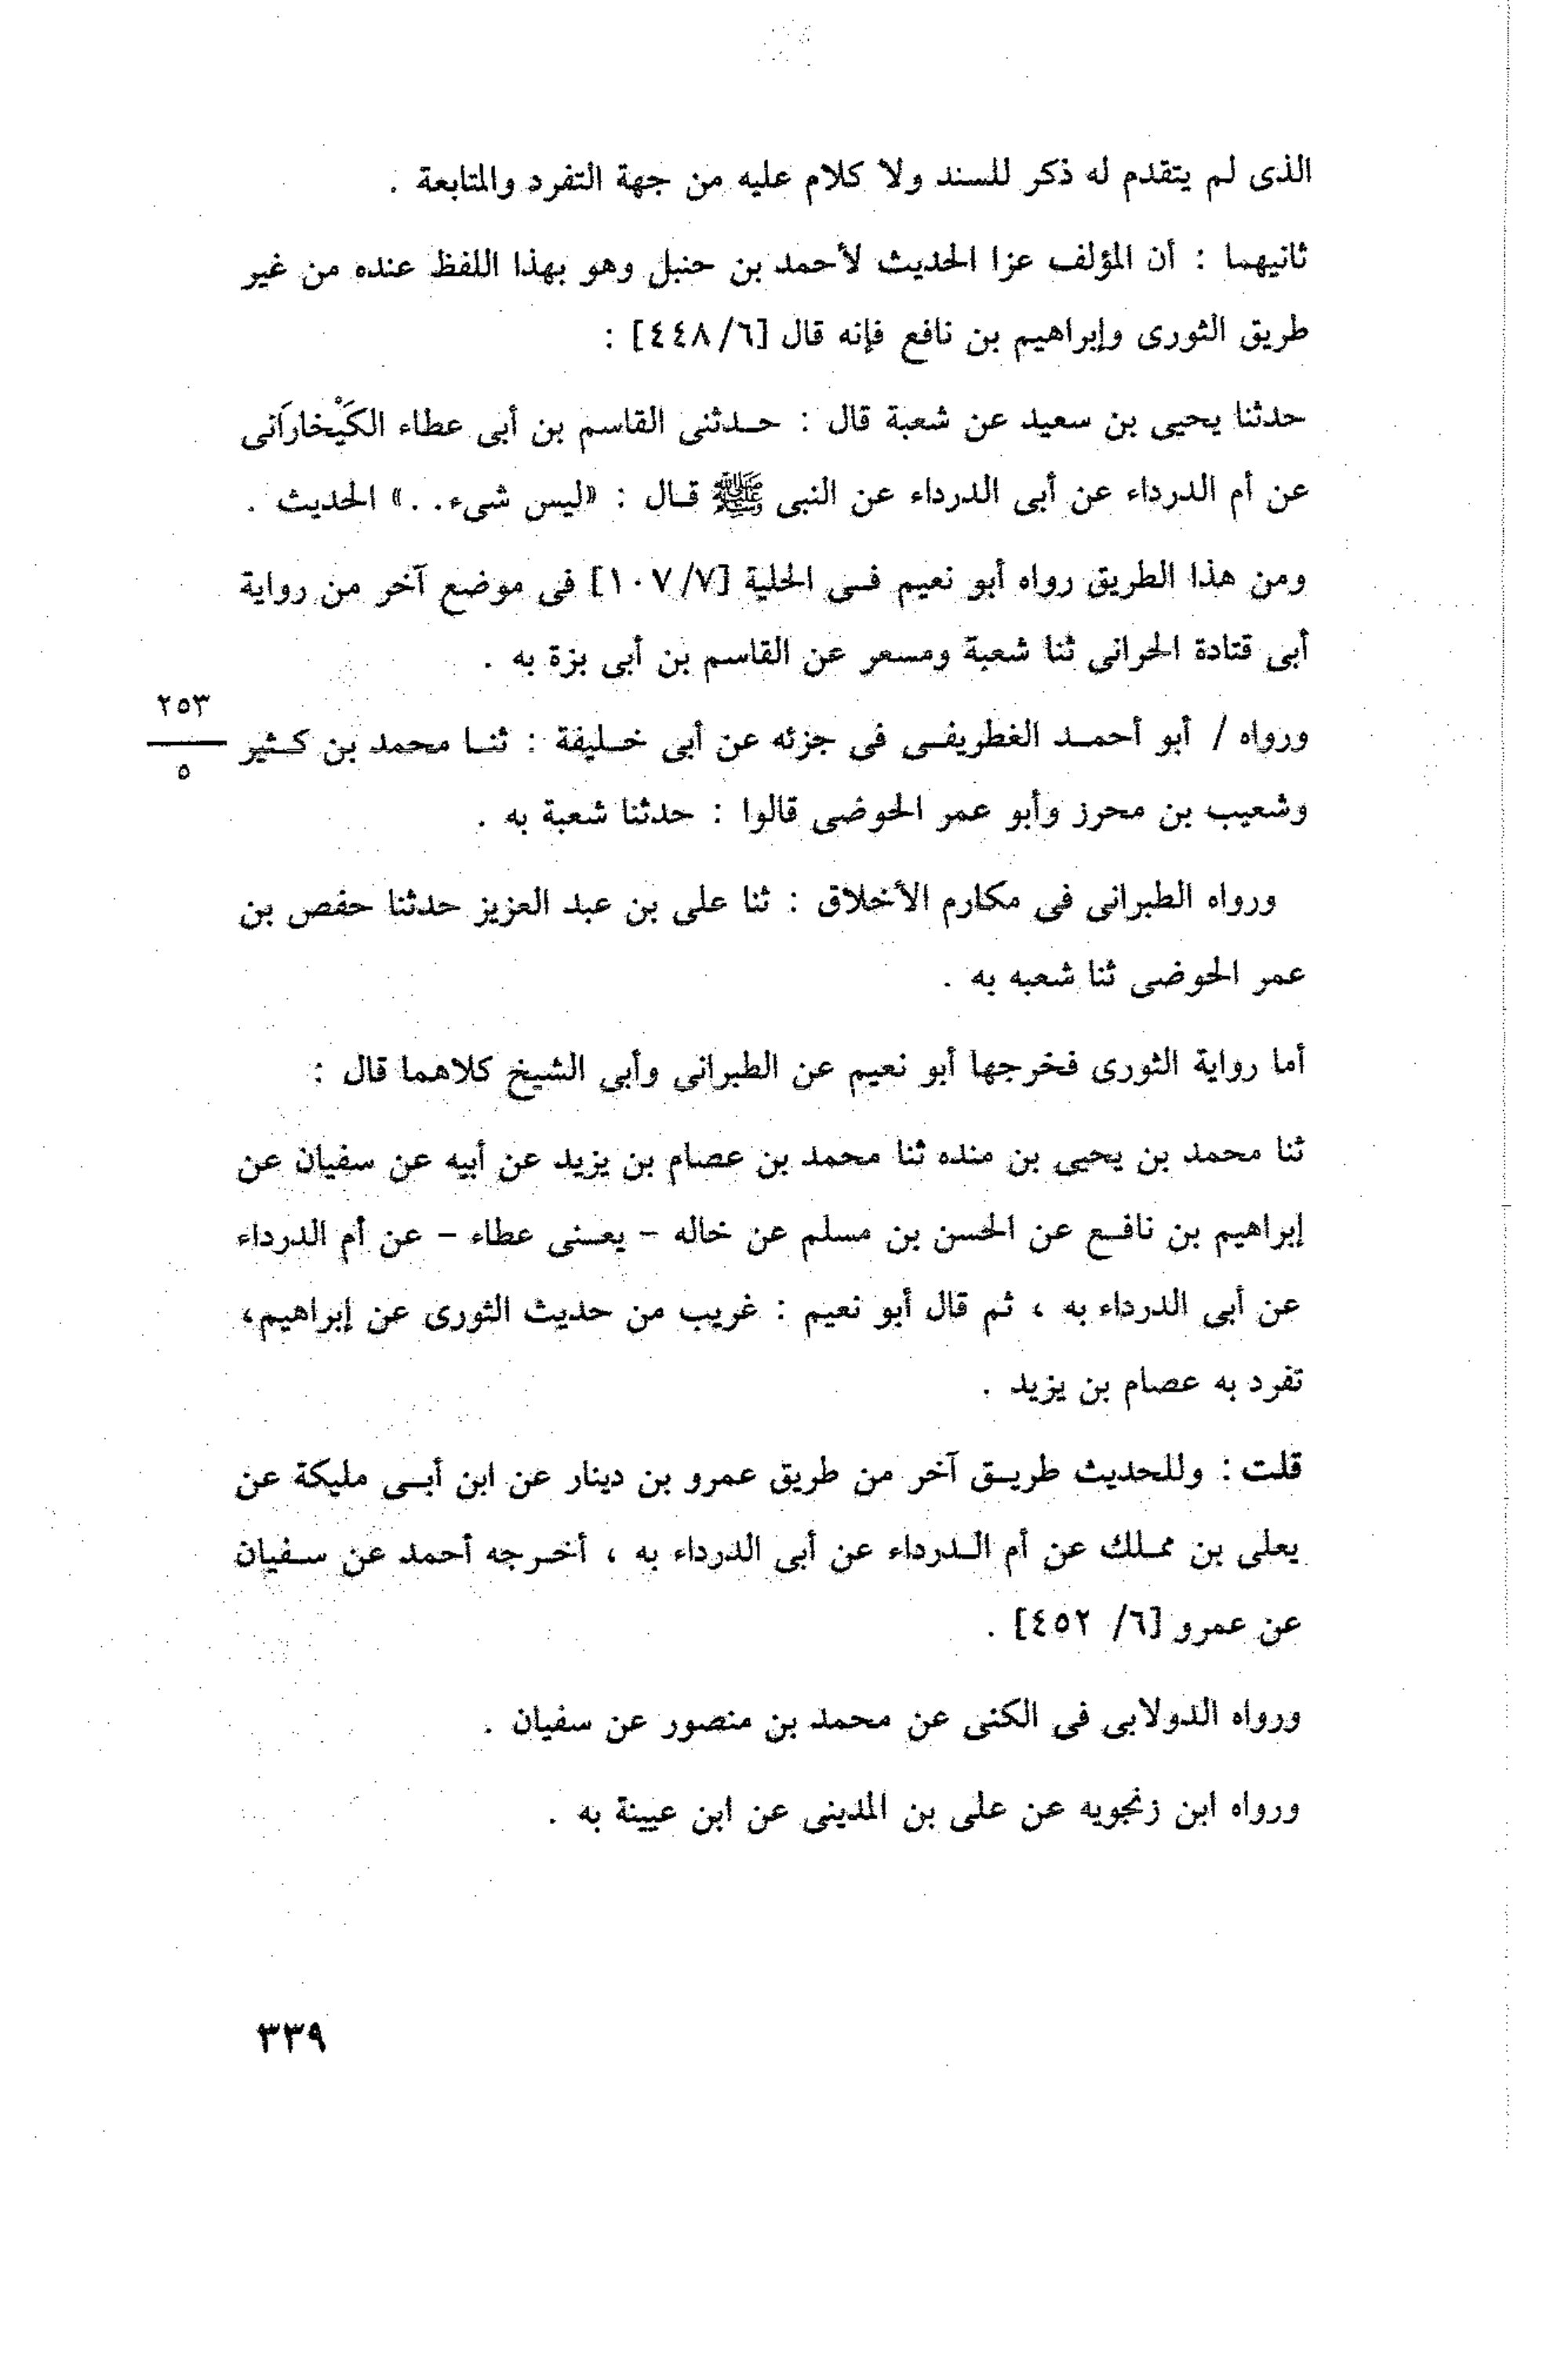 الذى لم يتقدم له ذكر للسند ولا كلام عليه من جهة التفرد والمتابعة .
ثانيهما : أن المؤلف عزا الحديث لأحمد بن حنبل وهو بهذا اللفظ عنده من غير
طريق الثورى وإبراهيم بن نافع فإنه قال [٦/٤٤٨] :
حدثنا يحيى بن سعيد عن شعبة قال : حدثنى القاسم بن أبى عطاء الكَيْخارَانى
عن أم الدرداء عن أبى الدرداء عن النبى ﷺ قال : «ليس شىء. .» الحديث .
ومن هذا الطريق رواه أبو نعيم فى الحلية [٧/١٠٧] فى موضع آخر من رواية
أبى قتادة الحرانى ثنا شعبة ومسعر عن القاسم بن أبى بزة به .
ورواه / أبو أحمد الغطريفى فى جزئه عن أبى خليفة : ثنا محمد بن كثير
٢٥٣
٥
وشعيب بن محرز وأبو عمر الحوضى قالوا : حدثنا شعبة به .
ورواه الطبرانى فى مكارم الأخلاق : ثنا على بن عبد العزيز حدثنا حفص بن
عمر الحوضى ثنا شعبه به .
أما رواية الثورى فخرجها أبو نعيم عن الطبرانى وأبى الشيخ كلاهما قال :
ثنا محمد بن يحيى بن منده ثنا محمد بن عصام بن يزيد عن أبيه عن سفيان عن
إبراهيم بن نافع عن الحسن بن مسلم عن خاله - يعنى عطاء - عن أم الدرداء
عن أبى الدرداء به ، ثم قال أبو نعيم : غريب من حديث الثورى عن إبراهيم،
تفرد به عصام بن يزيد .
قلت : وللحديث طريق آخر من طريق عمرو بن دينار عن ابن أبى مليكة عن
يعلى بن مملك عن أم الدرداء عن أبى الدرداء به ، أخرجه أحمد عن سفيان
عن عمرو [٦/ ٤٥٢] .
ورواه الدولابى فى الكنى عن محمد بن منصور عن سفيان .
ورواه ابن زنجويه عن على بن المدينى عن ابن عيينة به .
٣٣٩